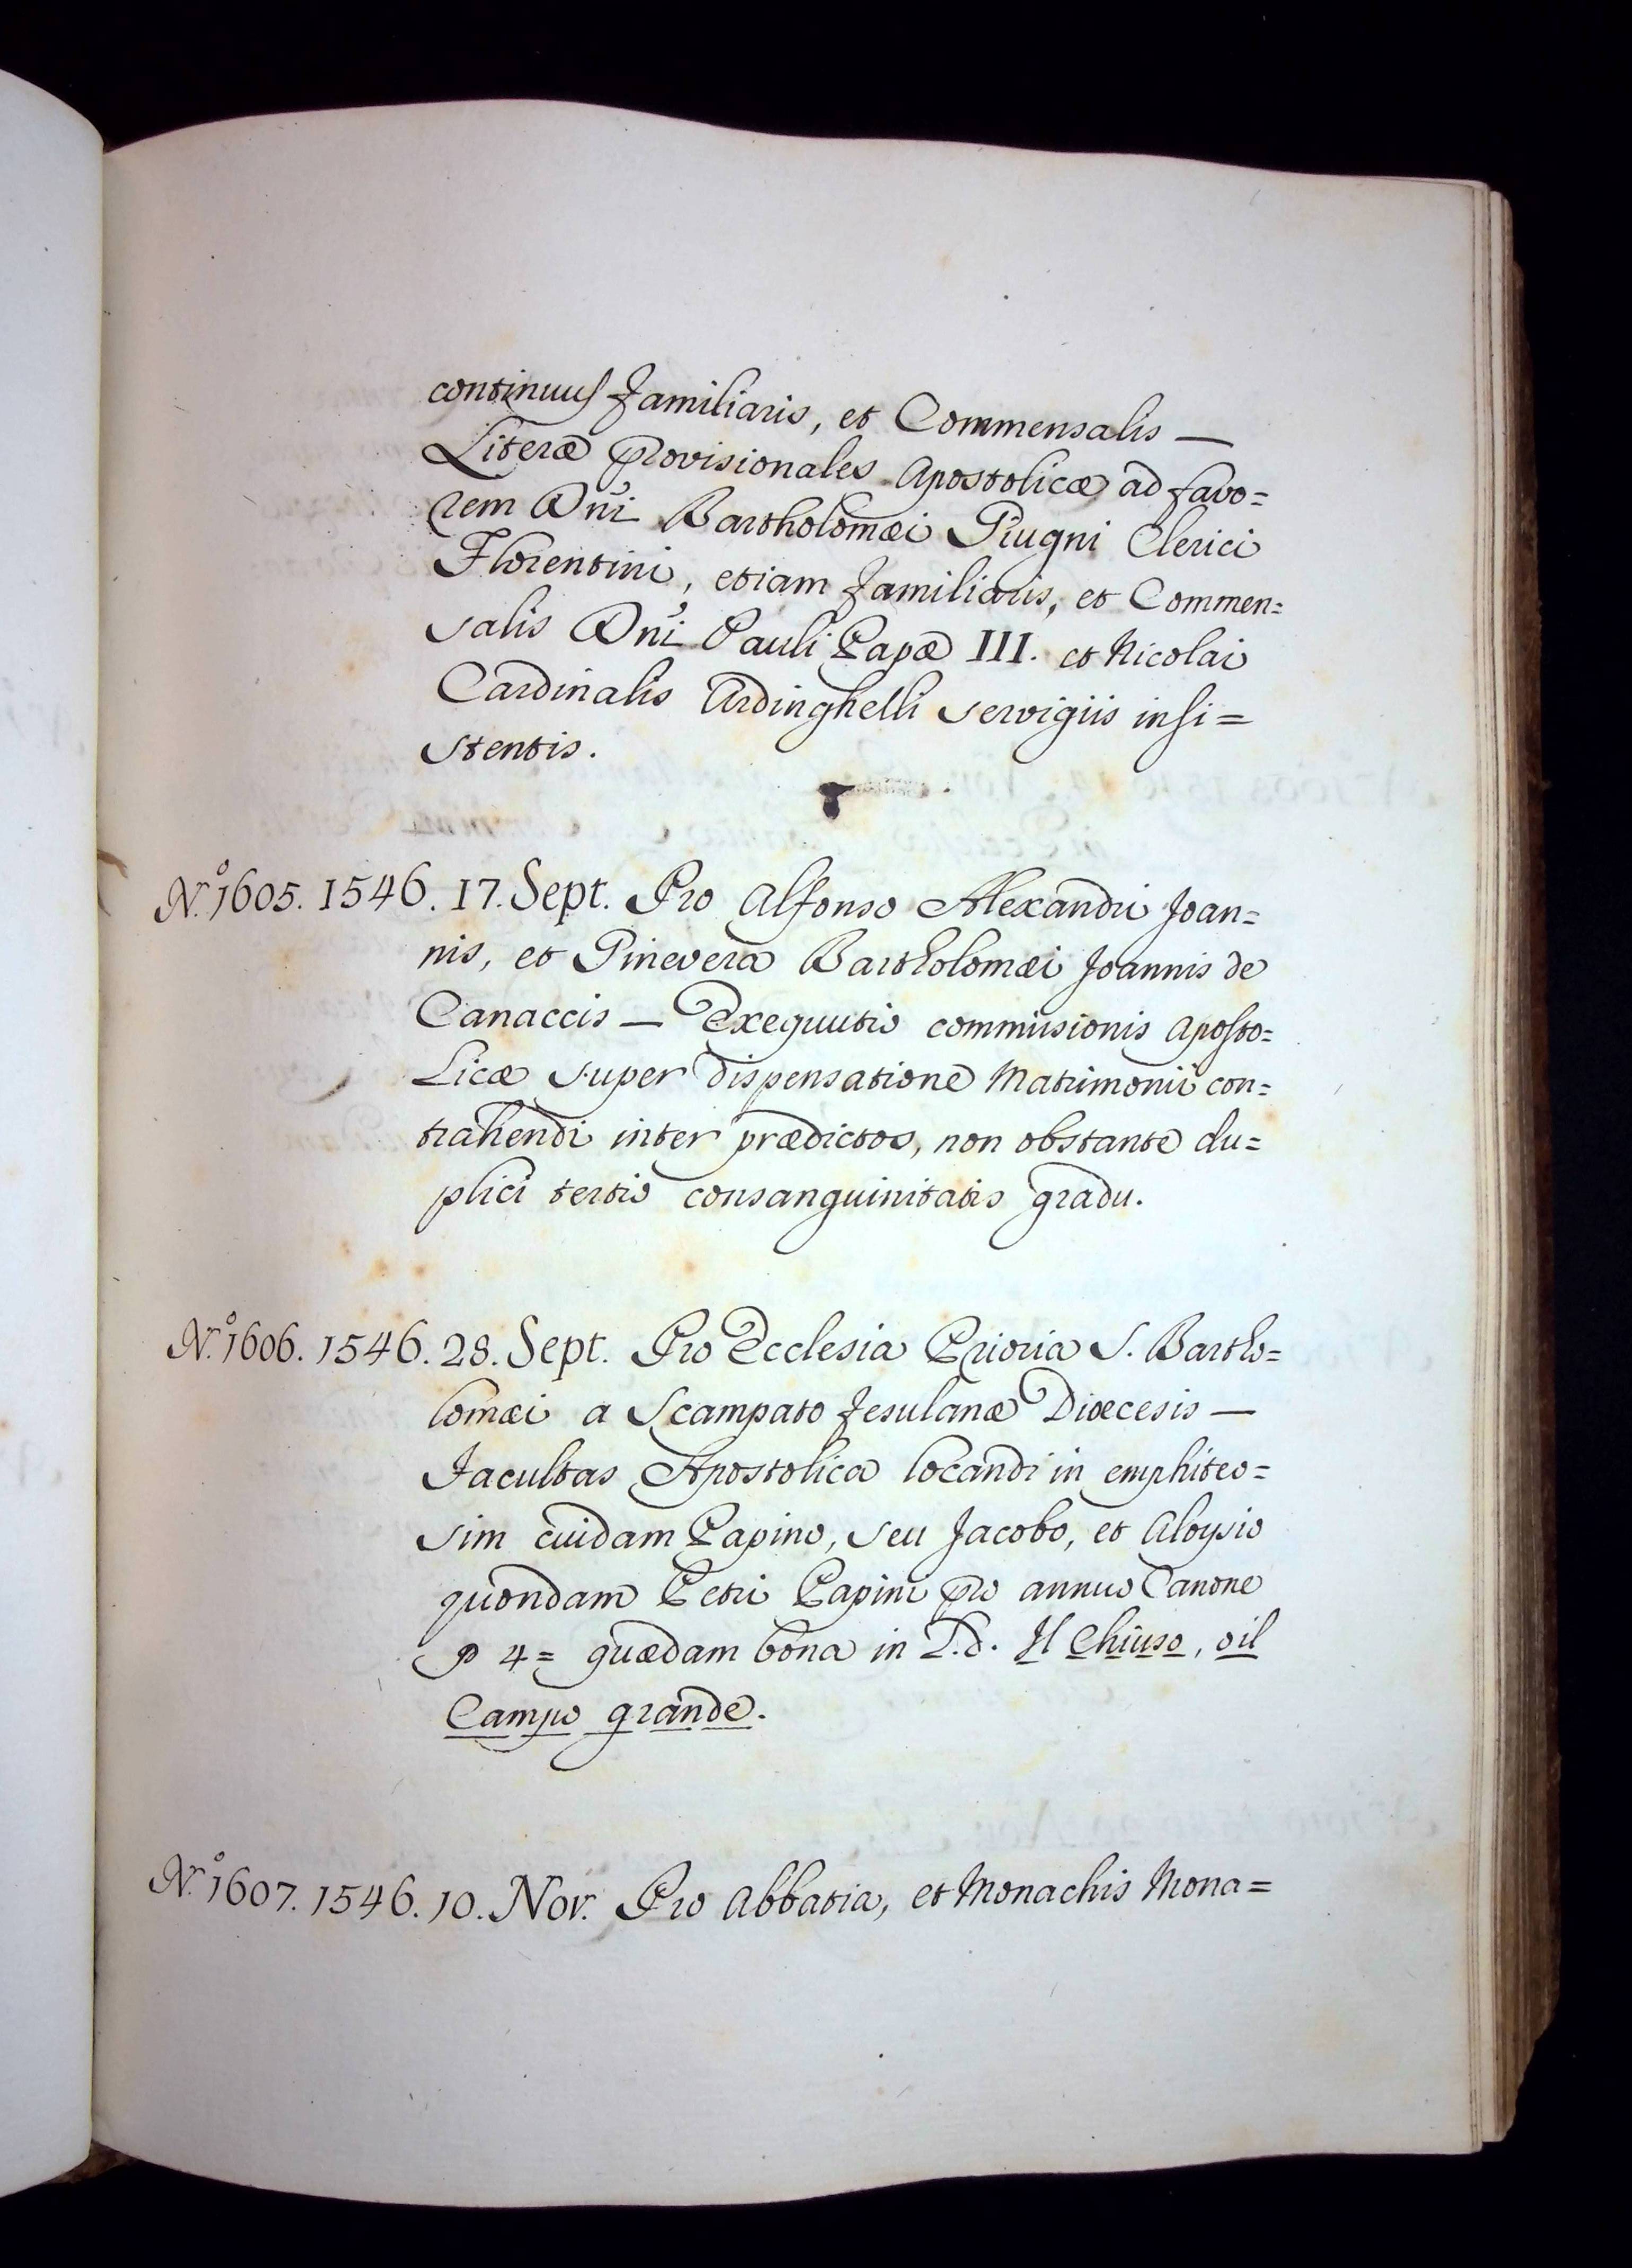 continuus Familiaris, et Commensalis —
Literæ Provisionales Apostolicæ ad favo=
rem Dñi Bartholomæi Giugni Clerici
Florentini, etiam Familiaris, et Commen=
salis Dñi Pauli Papæ III. et Nicolai
Cardinalis Ardinghelli servigiis insi=
stentis.
N.º 1605. 1546. 17. Sept. Pro Alfonso Alexandri Joan=
nis, et Ginevera Bartholomæi Joannis de
Canaccis — Exequutio commissionis Aposto=
licæ super dispensatione Matrimonii con=
trahendi inter prædictos, non obstante du=
plici tertio consanguinitatis gradu.
N.º 1606. 1546. 28. Sept. Pro Ecclesia Prioria S. Bartho=
lomæi a Scampato Fesulanæ Diœcesis —
Facultas Apostolica locandi in emphiteo=
sim cuidam Papino, seu Jacobo, et Aloysio
quondam Petri Papini pro annuo Canone
p 4= quædam bona in L.d. Il Chiuso, o il
Campo grande.
N.º 1607. 1546. 10. Nov. Pro Abbatia, et Monachis Mona=